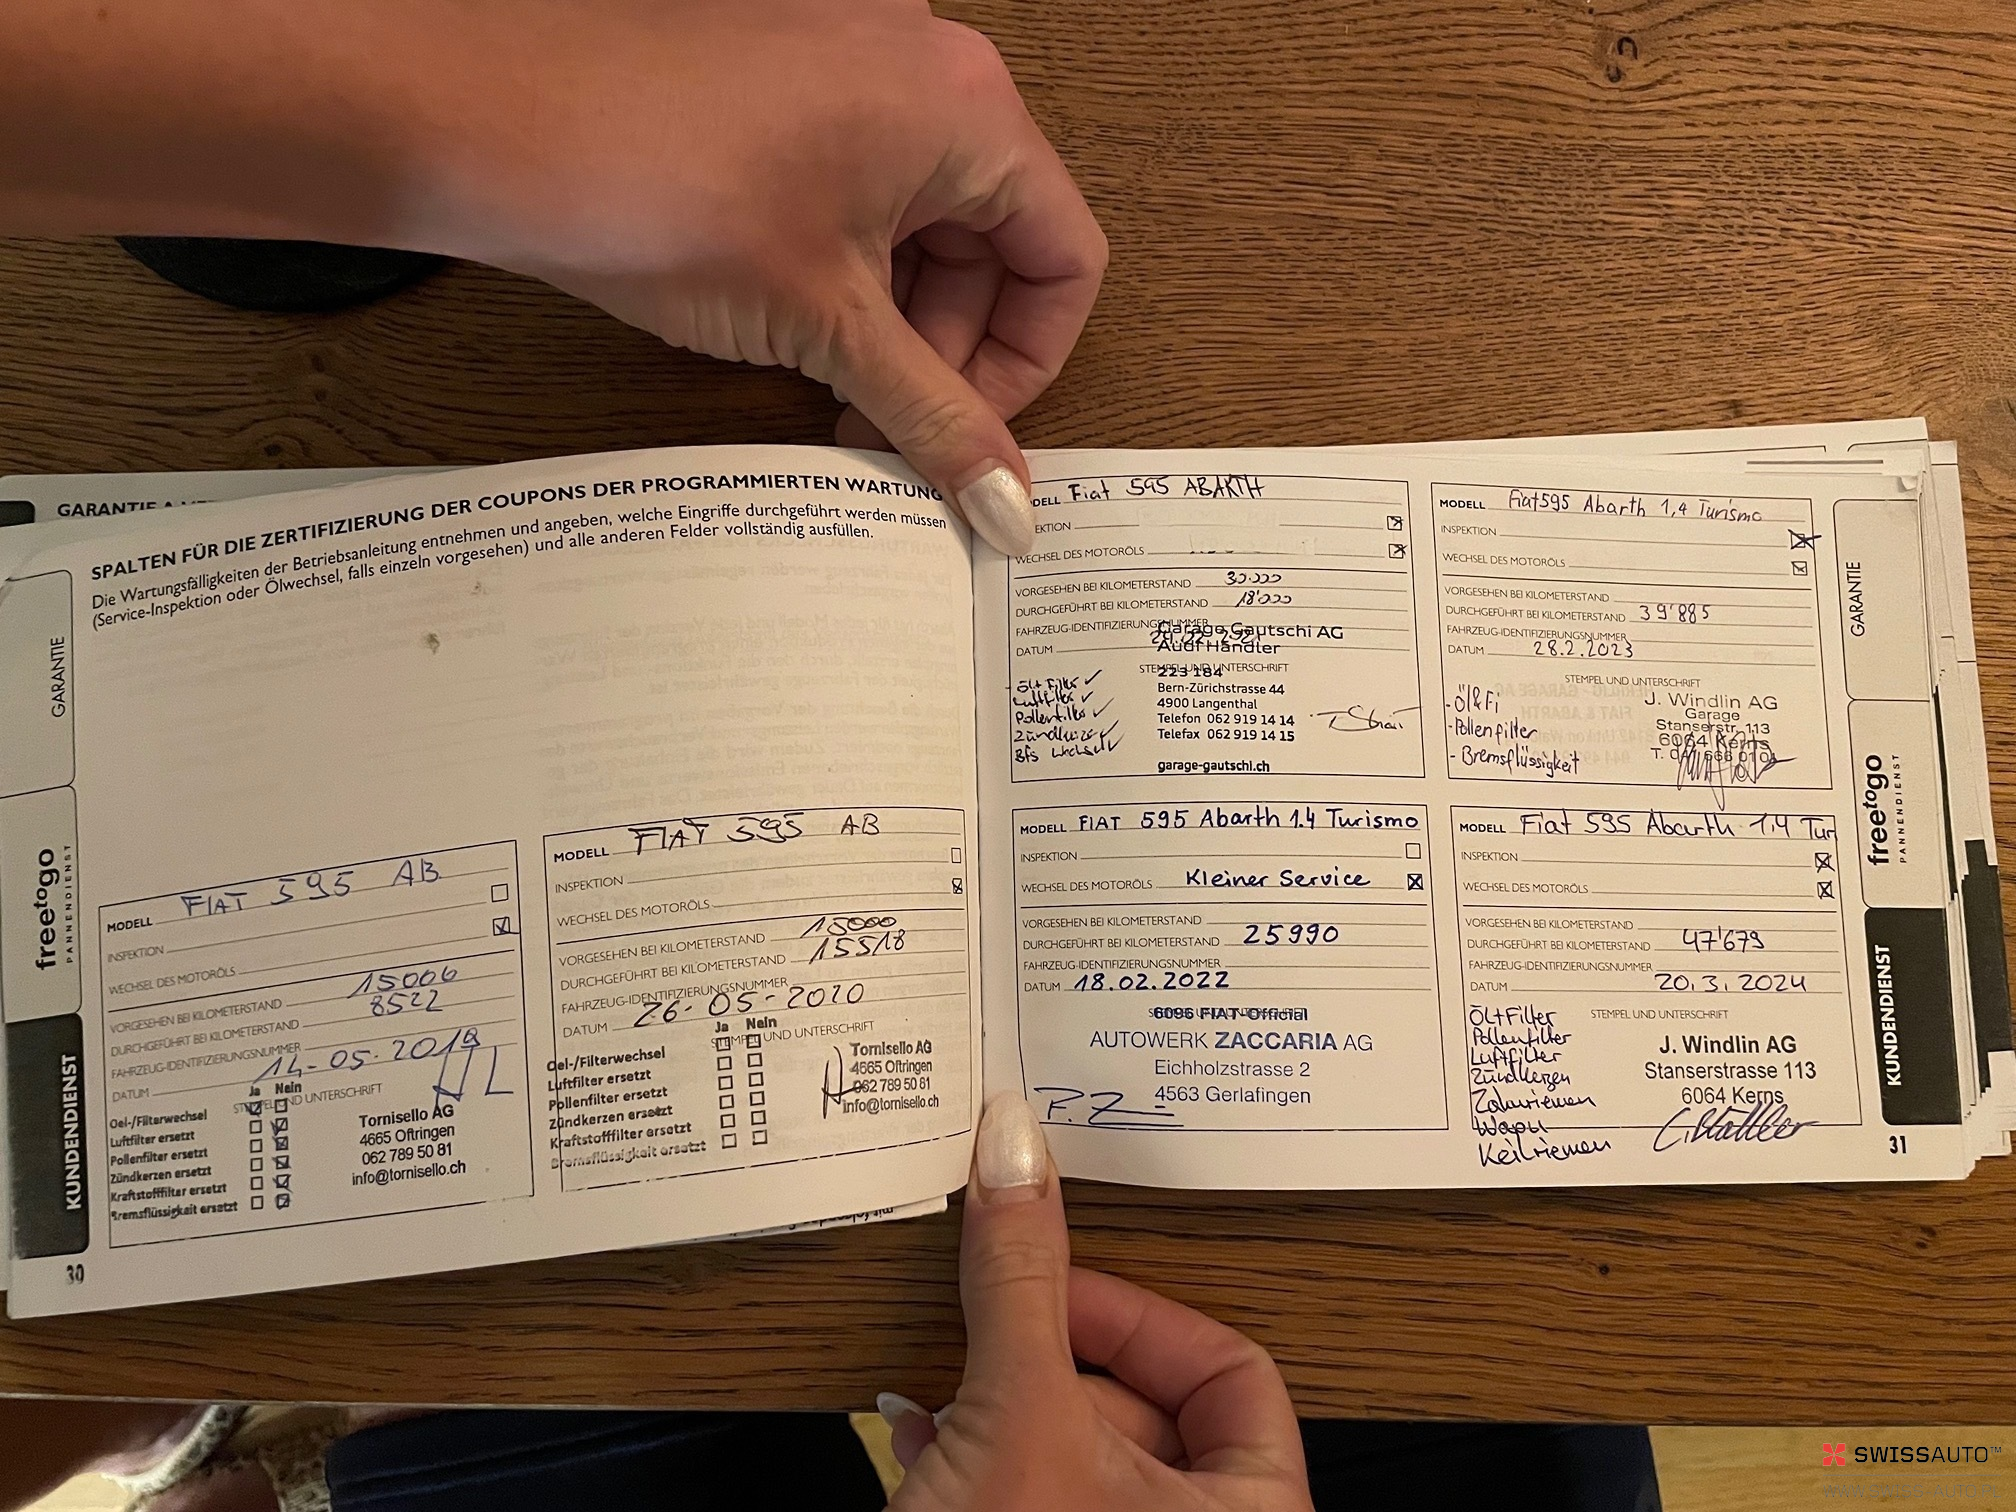 GARANTIE
SPALTEN FÜR DIE ZERTIFIZIERUNG DER COUPONS DER PROGRAMMIERTEN WARTUNG
Die Wartungsfälligkeiten der Betriebsanleitung entnehmen und angeben, welche Eingriffe durchgeführt werden müssen
(Service-Inspektion oder Ölwechsel, falls einzeln vorgesehen) und alle anderen Felder vollständig ausfüllen.
GARANTIE
freetogo
PANNENDIENST
KUNDENDIENST
30
MODELL FIAT 595 AB
INSPEKTION
WECHSEL DES MOTORÖLS
VORGESEHEN BEI KILOMETERSTAND 15000
DURCHGEFÜHRT BEI KILOMETERSTAND 8522
FAHRZEUG-IDENTIFIZIERUNGSNUMMER
DATUM 14-05-2019
Ja Nein
STEMPEL UND UNTERSCHRIFT
Oel-/Filterwechsel
Luftfilter ersetzt
Pollenfilter ersetzt
Zündkerzen ersetzt
Kraftstofffilter ersetzt
Bremsflüssigkeit ersetzt
Tornisello AG
4665 Oftringen
062 789 50 81
info@tornisello.ch
MODELL FIAT 595 AB
INSPEKTION
WECHSEL DES MOTORÖLS
VORGESEHEN BEI KILOMETERSTAND 15000
DURCHGEFÜHRT BEI KILOMETERSTAND 15518
FAHRZEUG-IDENTIFIZIERUNGSNUMMER
DATUM 26-05-2020
Ja Nein
STEMPEL UND UNTERSCHRIFT
Oel-/Filterwechsel
Luftfilter ersetzt
Pollenfilter ersetzt
Zündkerzen ersetzt
Kraftstofffilter ersetzt
Bremsflüssigkeit ersetzt
Tornisello AG
4665 Oftringen
062 789 50 81
info@tornisello.ch
DELL Fiat 595 ABARTH
EKTION
WECHSEL DES MOTORÖLS
VORGESEHEN BEI KILOMETERSTAND 30.000
DURCHGEFÜHRT BEI KILOMETERSTAND 18'000
FAHRZEUG-IDENTIFIZIERUNGSNUMMER
DATUM
STEMPEL UND UNTERSCHRIFT
Garage Gautschi AG
Audi Händler
223 184
Bern-Zürichstrasse 44
4900 Langenthal
Telefon 062 919 14 14
Telefax 062 919 14 15
garage-gautschi.ch
Öl+Filter ✓
Luftfilter ✓
Pollenfilter ✓
Zündkerze ✓
Bfs Wechsel ✓
MODELL Fiat 595 Abarth 1,4 Turismo
INSPEKTION
WECHSEL DES MOTORÖLS
VORGESEHEN BEI KILOMETERSTAND
DURCHGEFÜHRT BEI KILOMETERSTAND 39'885
FAHRZEUG-IDENTIFIZIERUNGSNUMMER
DATUM 28.2.2023
STEMPEL UND UNTERSCHRIFT
-Öl&Fi
-Pollenfilter
-Bremsflüssigkeit
J. Windlin AG
Garage
Stanserstr. 113
6064 Kerns
MODELL FIAT 595 Abarth 1.4 Turismo
INSPEKTION
WECHSEL DES MOTORÖLS Kleiner Service
VORGESEHEN BEI KILOMETERSTAND
DURCHGEFÜHRT BEI KILOMETERSTAND 25990
FAHRZEUG-IDENTIFIZIERUNGSNUMMER
DATUM 18.02.2022
6096 FIAT Official
AUTOWERK ZACCARIA AG
Eichholzstrasse 2
4563 Gerlafingen
MODELL Fiat 595 Abarth 1,4 Tur
INSPEKTION
WECHSEL DES MOTORÖLS
VORGESEHEN BEI KILOMETERSTAND
DURCHGEFÜHRT BEI KILOMETERSTAND 47'679
FAHRZEUG-IDENTIFIZIERUNGSNUMMER
DATUM 20.3.2024
STEMPEL UND UNTERSCHRIFT
Öl+Filter
Pollenfilter
Luftfilter
Zündkerzen
Zahnriemen
Wapu
Keilriemen
J. Windlin AG
Stanserstrasse 113
6064 Kerns
GARANTIE
freetogo
PANNENDIENST
KUNDENDIENST
31
SWISSAUTO™